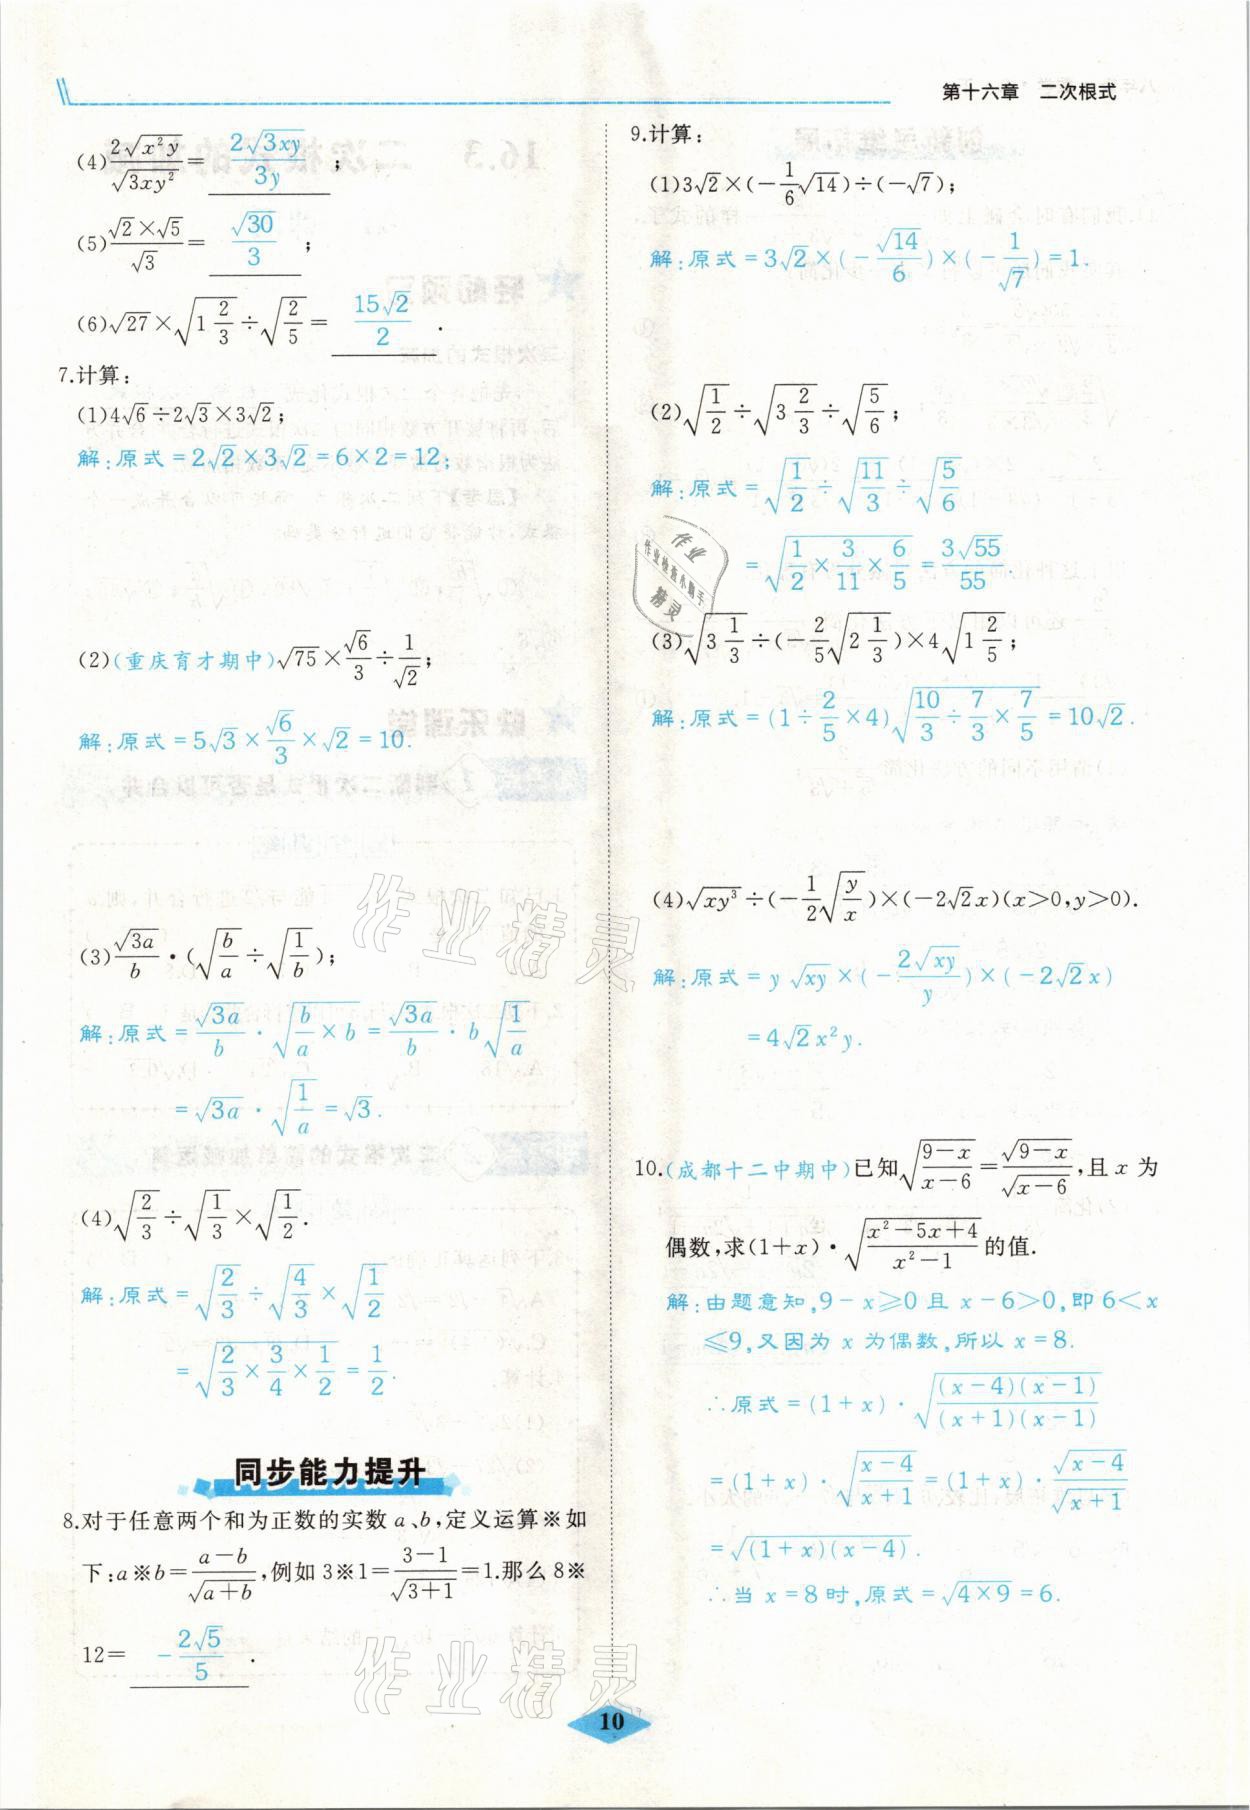 第十六章 二次根式
(4) 2√(x²y)/√(3xy²) = 2√(3xy)/3y ;
(5) (√2×√5)/√3 = √30/3 ;
(6) √27×√(1 2/3)÷√(2/5) = 15√2/2 .
7.计算:
(1)4√6÷2√3×3√2;
解:原式=2√2×3√2=6×2=12;
(2)(重庆育才期中)√75×√6/3÷1/√2;
解:原式=5√3×√6/3×√2=10.
(3)√(3a)/b·(√(b/a)÷√(1/b));
解:原式=√(3a)/b·√(b/a×b)=√(3a)/b·b√(1/a)
=√(3a)·√(1/a)=√3.
(4)√(2/3)÷√(1 1/3)×√(1/2).
解:原式=√(2/3)÷√(4/3)×√(1/2)
=√(2/3×3/4×1/2)=1/2.
同步能力提升
8.对于任意两个和为正数的实数a、b,定义运算※如
下:a※b=(a-b)/√(a+b),例如3※1=(3-1)/√(3+1)=1.那么8※
12= -2√5/5 .
9.计算:
(1)3√2×(-1/6√14)÷(-√7);
解:原式=3√2×(-√14/6)×(-1/√7)=1.
(2)√(1/2)÷√(3 2/3)÷√(5/6);
解:原式=√(1/2)÷√(11/3)÷√(5/6)
=√(1/2×3/11×6/5)=3√55/55.
(3)√(3 1/3)÷(-2/5√(2 1/3))×4√(1 2/5);
解:原式=(1÷2/5×4)√(10/3÷7/3×7/5)=10√2.
(4)√(xy³)÷(-1/2√(y/x))×(-2√2x)(x>0,y>0).
解:原式=y√(xy)×(-2√(xy)/y)×(-2√2x)
=4√2x²y.
10.(成都十二中期中)已知√((9-x)/(x-6))=√(9-x)/√(x-6),且x为
偶数,求(1+x)·√((x²-5x+4)/(x²-1))的值.
解:由题意知,9-x≥0且x-6>0,即6<x
≤9,又因为x为偶数,所以x=8.
∴原式=(1+x)·√((x-4)(x-1)/(x+1)(x-1))
=(1+x)·√((x-4)/(x+1))=(1+x)·√(x-4)/√(x+1)
=√((1+x)(x-4)).
∴当x=8时,原式=√(4×9)=6.
作业
作业检查小助手
精灵
作业精灵
作业精灵
10